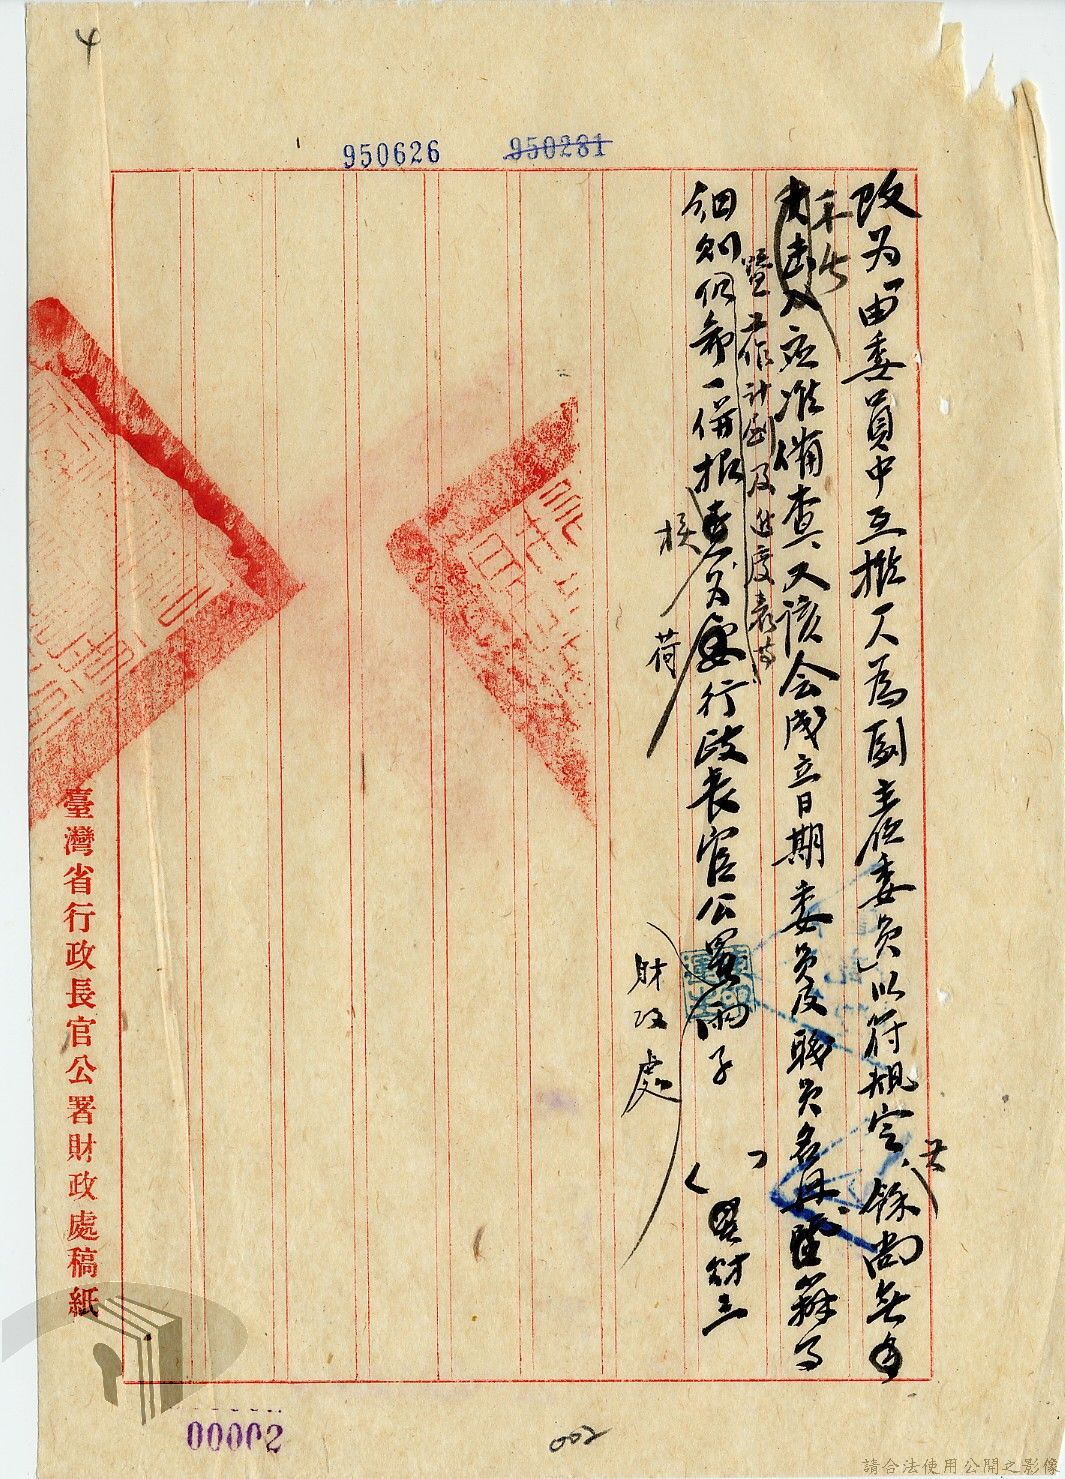 4
950626
950281
改为「由委員中互推一人為副主任委員」以符規定、其餘尚無不合
应准備查、又該会成立日期委員及職員名冊暨辦事
細則仍希一併报核为荷行政長官公署
暨工作計劃及進度表等
財政處
臺灣省行政長官公署財政處稿紙
00002
002
請合法使用公開之影像